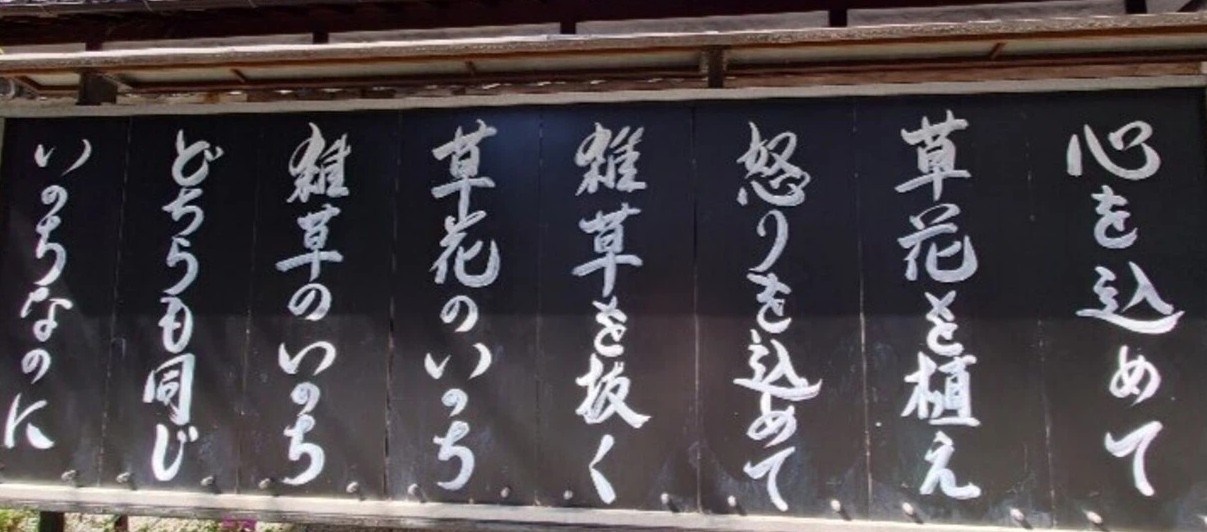 心を込めて
草花を植え
怒りを込めて
雑草を抜く
草花のいのち
雑草のいのち
どちらも同じ
いのちなのに